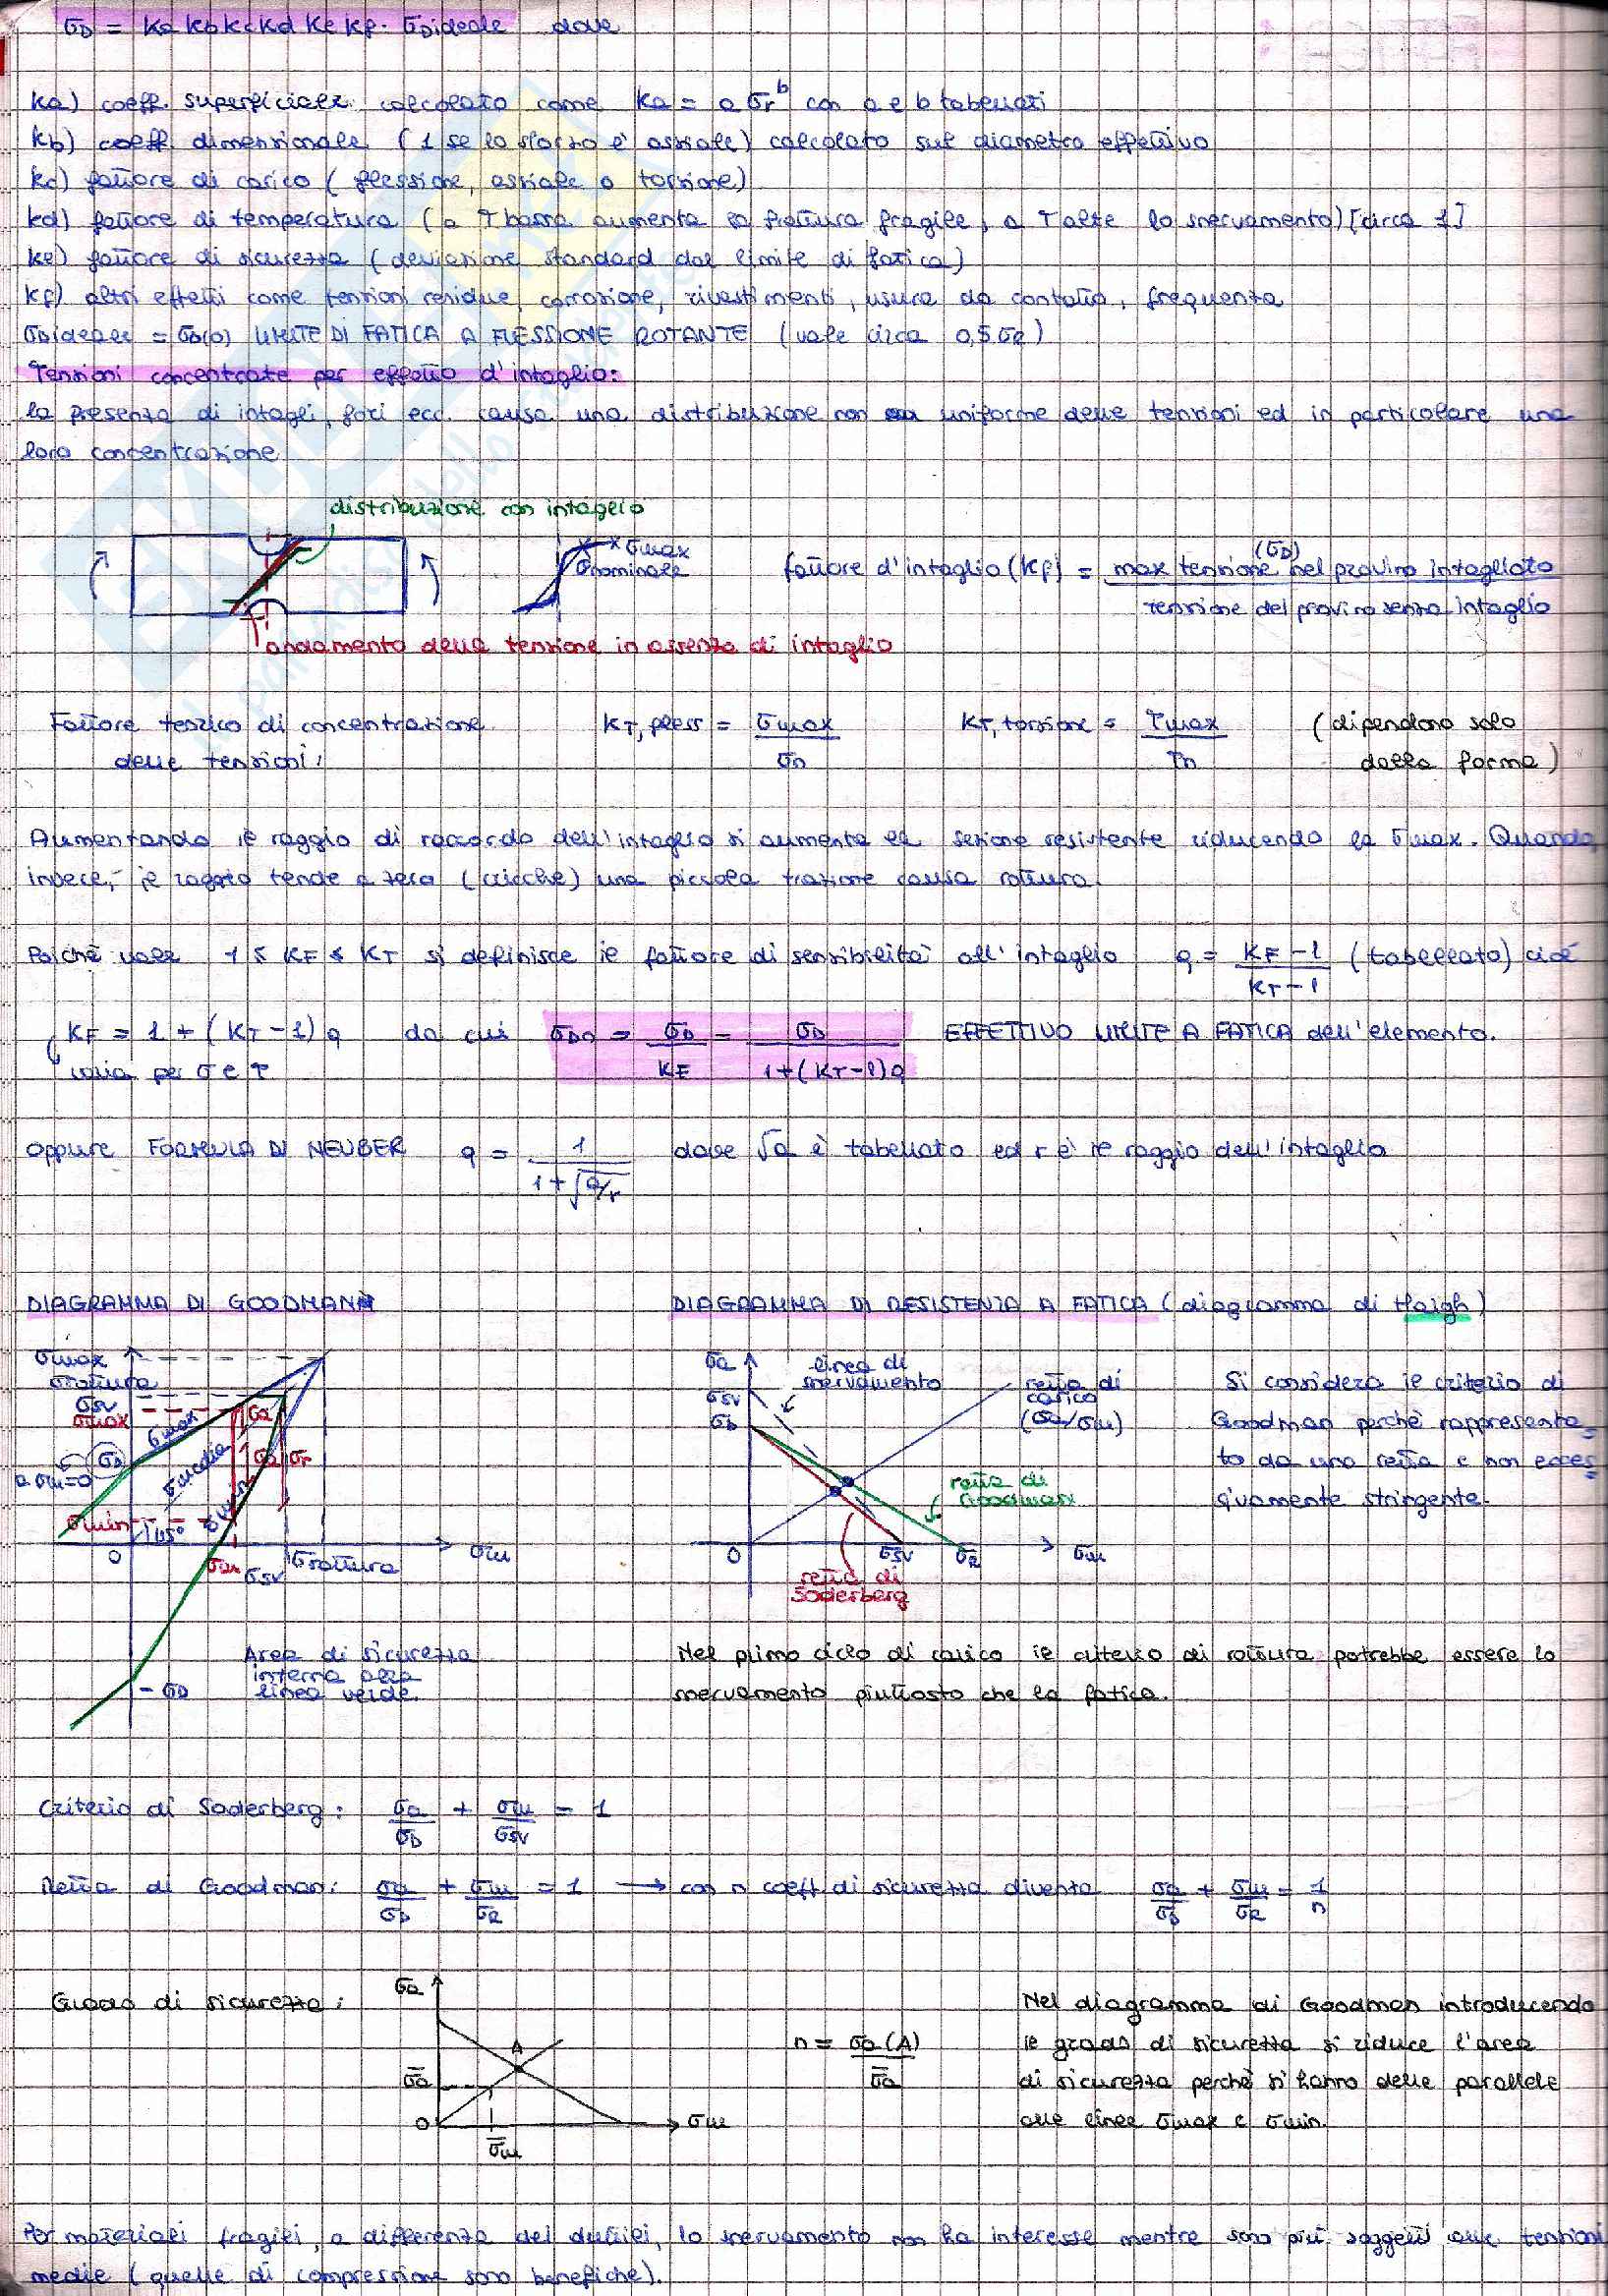 σD = ka kb kc kd ke kf · σDideale dove
ka) coeff. superficiale calcolato come ka = a σr^b con a e b tabellati
kb) coeff. dimensionale (1 se lo sforzo è assiale) calcolato sul diametro effettivo
kc) fattore di carico (flessione, assiale o torsione)
kd) fattore di temperatura (a T bassa aumenta la frattura fragile, a T alte lo snervamento) [circa 1]
ke) fattore di sicurezza (deviazione standard dal limite di fatica)
kf) altri effetti come tensioni residue, corrosione, rivestimenti, usura da contatto, frequenza
σDideale = σD(0) LIMITE DI FATICA A FLESSIONE ROTANTE (vale circa 0,5 σR)
Tensioni concentrate per effetto d'intaglio:
la presenza di intagli, fori ecc. causa una distribuzione non uniforme delle tensioni ed in particolare una
loro concentrazione
distribuzione con intaglio
σmax
σnominale
fattore d'intaglio (kf) = max tensione (σD) nel provino intagliato / tensione del provino senza intaglio
andamento della tensione in assenza di intaglio
Fattore teorico di concentrazione delle tensioni: KT,fless = σmax/σn KT,torsione = τmax/τn (dipendono solo dalla forma)
Aumentando il raggio di raccordo dell'intaglio si aumenta la sezione resistente riducendo la σmax. Quando
invece, il raggio tende a zero (cricche) una piccola trazione causa rottura.
Poichè vale 1 ≤ KF ≤ KT si definisce il fattore di sensibilità all'intaglio q = (KF - 1)/(KT - 1) (tabellato) cioè
KF = 1 + (KT - 1) q da cui σD0 = σD/KF = σD/(1+(KT-1)q) EFFETTIVO LIMITE A FATICA dell'elemento.
varia per σ e τ
oppure FORMULA DI NEUBER q = 1/(1+√a/r) dove √a è tabellato ed r è il raggio dell'intaglio
DIAGRAMMA DI GOODMAN
σmax
σrottura
σsv
σmax
σD
a σm=0
σmin
σmax
σmedia
σmin
σa
σa
σr
45°
0
σm
σsv
σrottura
σm
-σD
Area di sicurezza
interna alla
linea verde.
DIAGRAMMA DI RESISTENZA A FATICA (diagramma di Haigh)
σa
σsv
σD
linea di
snervamento
retta di
carico
(σa/σm)
retta di
Goodman
0
σsv
σR
σm
retta di
Soderberg
Si considera il criterio di
Goodman perchè rappresenta-
to da una retta e non ecces-
sivamente stringente.
Nel primo ciclo di carico il criterio di rottura potrebbe essere lo
snervamento piuttosto che la fatica.
Criterio di Soderberg: σa/σD + σm/σsv = 1
Retta di Goodman: σa/σD + σm/σR = 1 → con n coeff. di sicurezza diventa σa/σD + σm/σR = 1/n
Grado di sicurezza:
σa
A
σ̄a
0
σm
σ̄m
n = σa(A)/σ̄a
Nel diagramma di Goodman introducendo
il grado di sicurezza si riduce l'area
di sicurezza perchè si hanno delle parallele
alle linee σmax e σmin.
Per materiali fragili, a differenza dei duttili, lo snervamento non ha interesse mentre sono più soggetti alle tensioni
medie (quelle di compressione sono benefiche).